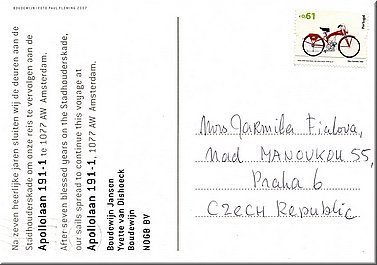 BOUDEWIJN | FOTO PAUL FLEMING 2007
Na zeven heerlijke jaren sluiten wij de deuren aan de
Stadhouderskade om onze reis te vervolgen aan de
Apollolaan 191-1 te 1077 AW Amsterdam.
After seven blessed years on the Stadhouderskade,
our sails spread to continue this voyage at
Apollolaan 191-1, 1077 AW Amsterdam.
Boudewijn Jansen
Yvette van Dishoeck
Boudewijn
NDGB BV
€0,61
Portugal
Mrs Jarmila Fialova,
Nad MANOVKOU 55,
Praha 6
CZECH Republic